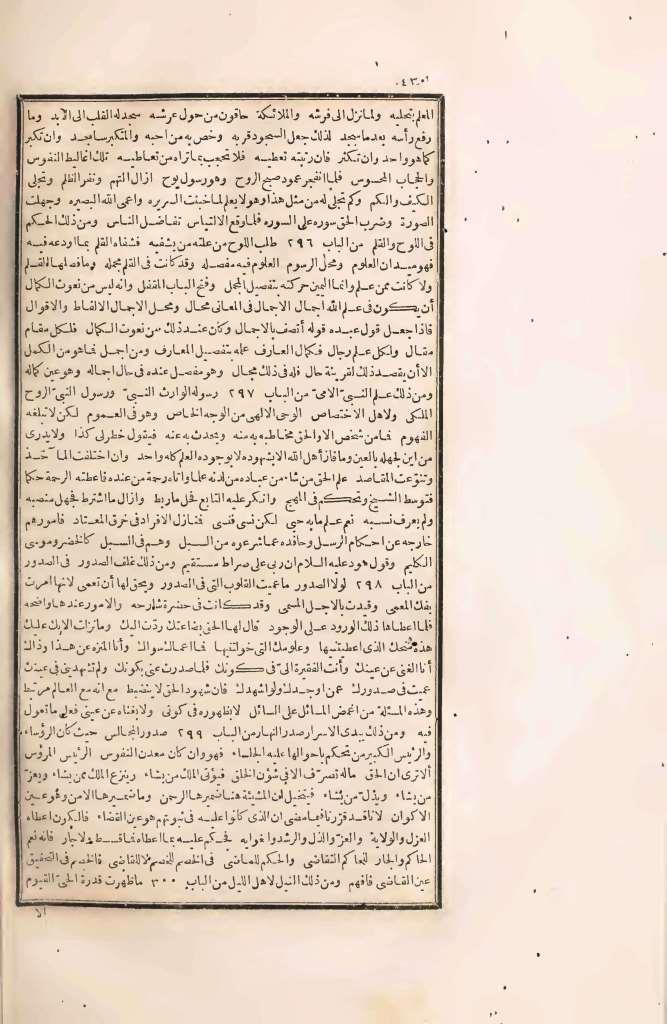 ٤٣٠
المعلم بتجليه ولما نزل الى فرشه والملائكة حافون من حول عرشه سجد له القلب الى الابد وما
رفع رأسه بعد ما سجد لذلك جعل السجود قربه وخص به من احبه والمتكبر ساجد وان تكبر
كما هو واحد وان تكثر فان رتبته تعطيه فلا تتعجب بما تراه من تعاطيه تلك اغاليط النفوس
والحجاب المحسوس فلما انفجر عمود صبح الروح وهو رسول يوح ازال التهم ونفر الظلم وتجلى
الكيف والكم وكم تجلى له من مثل هذا وهو لا يعلم لما خبثت السريره واعمى الله البصيره وجهلت
الصورة وضرب الحق سوره على السوره فلما وقع الالتباس تفاضل الناس ومن ذلك الحكم
فى اللوح والقلم من الباب ٢٩٦ طلب اللوح من علته من يشفيه فشفاه القلم بما اودعه فيه
فهو ميدان العلوم ومحل الرسوم العلوم فيه مفصله وقد كانت فى القلم مجمله وما فصلها القلم
ولا كانت ممن علم وانما اليمين حركته بتفصيل المجمل وفتح الباب المقفل وانه ليس من نعوت الكمال
أن يكون فى علم الله اجمال الاجمال فى المعانى محال ومحل الاجمال الالفاظ والاقوال
فاذا جعل قول عبده قوله أتصف بالاجمال وكان عند ذلك من نعوت الكمال فلكل مقام
مقال ولكل علم رجال فكمال العارف علمه بتفصيل المعارف ومن اجمل فما هو من الكمل
الا أن يقصد ذلك لقرينة حال فله فى ذلك مجال وهو مفصل عنده فى حال اجماله وهو عين كماله
ومن ذلك علم النبىّ الامىّ من الباب ٢٩٧ رسوله الوارث النبىّ ورسول النبىّ الروح
الملكى ولاهل الاختصاص الوحى الالهى من الوجه الخاص وهو فى العموم لكن لا تبلغه
الفهوم فما من شخص الا والحق مخاطبه به منه ويحدث به عنه فيقول خطر لى كذا ولا يدرى
من اين لجهله بالعين وما فاز أهل الله الا بشهوده لا بوجوده العلم كله واحد وان اختلفت المآخذ
وتنوّعت المقاصد علم الحق من شاء من عباده من لدنه علما وآتاه رحمة من عنده فاعطته الرحمة حكما
فتوسط الشيخ وتحكم فى المهج وانكر عليه التابع فحل ما ربط وازال ما اشترط فجهل منصبه
ولم يعرف نسبه نعم علم ما به حبى لكن نسى فنسى فمنازل الافراد فى خرق المعتاد فامورهم
خارجه عن احكام الرسل وحافده عما شرعوه من السبل وهم فى السبل كالخضر وموسى
الكليم وقول هود عليه السلام ان ربى على صراط مستقيم ومن ذلك غلف الصدور فى الصدور
من الباب ٢٩٨ لولا الصدور ما عميت القلوب التى فى الصدور ويحق لها أن تعمى لانها امرت
بفك المعمى وقيدت بالاجل المسمى وقد كانت فى حضرة شارحه والامور عندها واضحه
فلما اعطاها ذلك الورود على الوجود قال لها الحق بضاعتك ردّت اليك وما نزلت الا بك عليك
هذه منحك الذى اعطيتنيها وعلومك التى خولتنيها فما اعمالك سوالك وأنا المنزه عن هذا وذاك
أنا الغنى عن عينك وأنت الفقيرة الىّ فى كونك فلما صدرت عنى بكونك ولم تشهدينى فى عينك
عميت فى صدورك عمن اوجدك ولو اشهدك فان شهود الحق لا ينضبط مع انه مع العالم مرتبط
وهذه المسئلة من اغمض المسائل على السائل لا بظهوره فى كونى ولا بغناه عن عينى فعلى ما تعول
فيه ومن ذلك يبدى الاسرار صدر النهار من الباب ٢٩٩ صدور المجالس حيث كان الرؤساء
والرئيس الكبير من تحكم باحوالها عليه الجلساء فهو وان كان معدن النفوس الرئيس المرؤس
ألا ترى ان الحق ما له تصرف الا فى شؤن الخلق فيؤتى الملك من يشاء وينزع الملك ممن يشاء ويعزّ
من يشاء ويذلّ من يشاء فتتخيل ان المشيئة هنا ضميرها الرحمن وما ضميرها الا من وهو عين
الاكوان لانا قد قررنا فيما مضى ان الذى كانوا عليه فى ثبوتهم هو عين القضاء فالكون اعطاه
العزل والولاية والعزّ والذل والرشد والغوايه فحكم عليه بما اعطاه فما قسط ولا جار فانه نعم
الحاكم والجار لتحاكم التقاضى والحكم للماضى فى الخصم للخصم لا للقاضى فالخصم فى التحقيق
عين القاضى فافهم ومن ذلك النيل لاهل الليل من الباب ٣٠٠ ما ظهرت قدرة الحىّ القيوم
الا